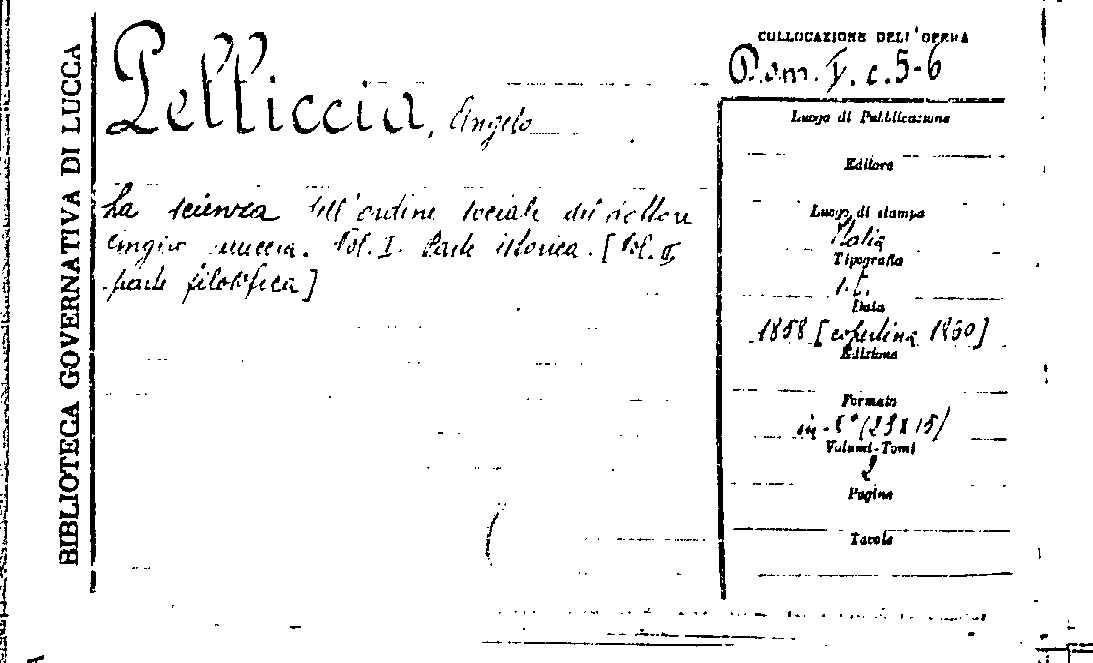 BIBLIOTECA GOVERNATIVA DI LUCCA
Pelliccia, Angelo
La scienza dell'ordine sociale del dottore
Vol. I. Parte istorica. [Vol. II
parte filosofica]
COLLOCAZIONE DELL'OPERA
Dom. c. 5-6
Luogo di Pubblicazione
Editore
Luogo di stampa
Italia
Tipografia
s.t.
Data
1858 [copertina 1860]
Edizione
Formato
in-8° (23x15)
Volumi-Tomi
2
Pagine
Tavole